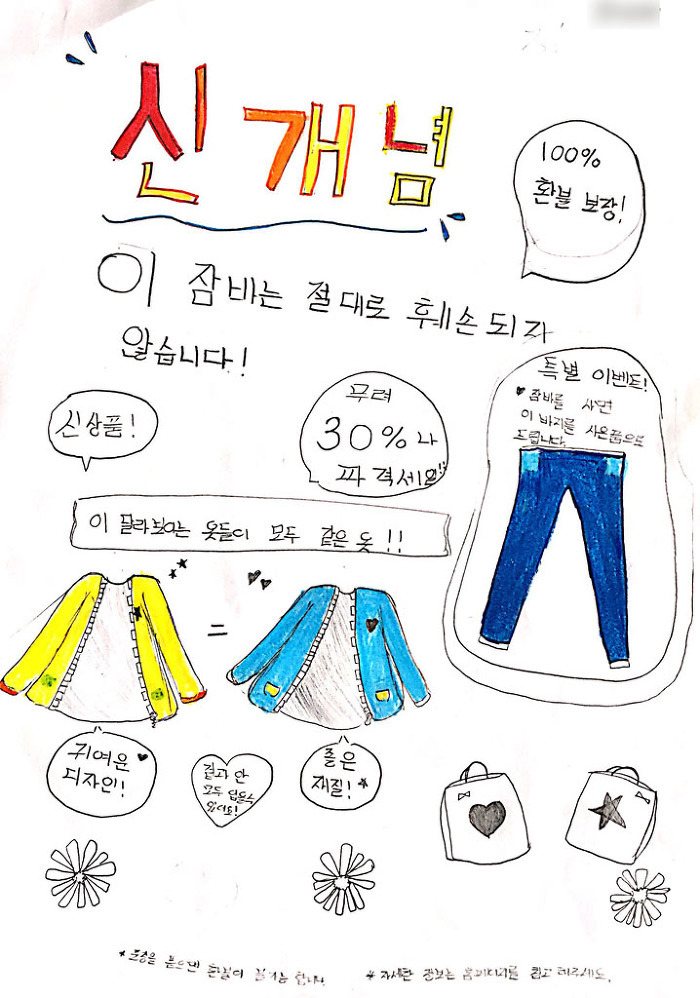 신개념
100%
환불 보장!
이 잠바는 절대로 훼손되지
않습니다!
특별 이벤트!
♥잠바를 사면
이 바지를 사은품으로
드립니다.
신상품!
무려
30%나
짜 격세일!!
이 달라보이는 옷들이 모두 같은 옷!!
=
귀여운♥
디자인!
겉과 안
모두 입을 수
있어요!
좋은
재질!★
*도중을 뜯으면 환불이 불가능 합니다.
*자세한 정보는 홈페이지를 참고해주세요.